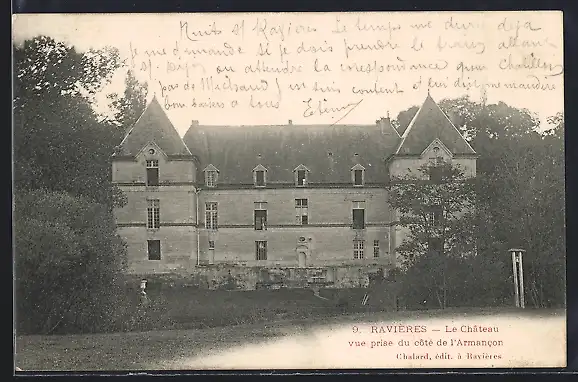 Nuits st Ravières Le temps me dure déjà
je me demande si je dois prendre le train allant
st Dijon ou attendre la correspondance pour Chatillon
pas de Michaud est suis content et lui
Bon baisers à tous
9. RAVIÈRES — Le Château
vue prise du côté de l'Armançon
Chalard, édit. à Ravières